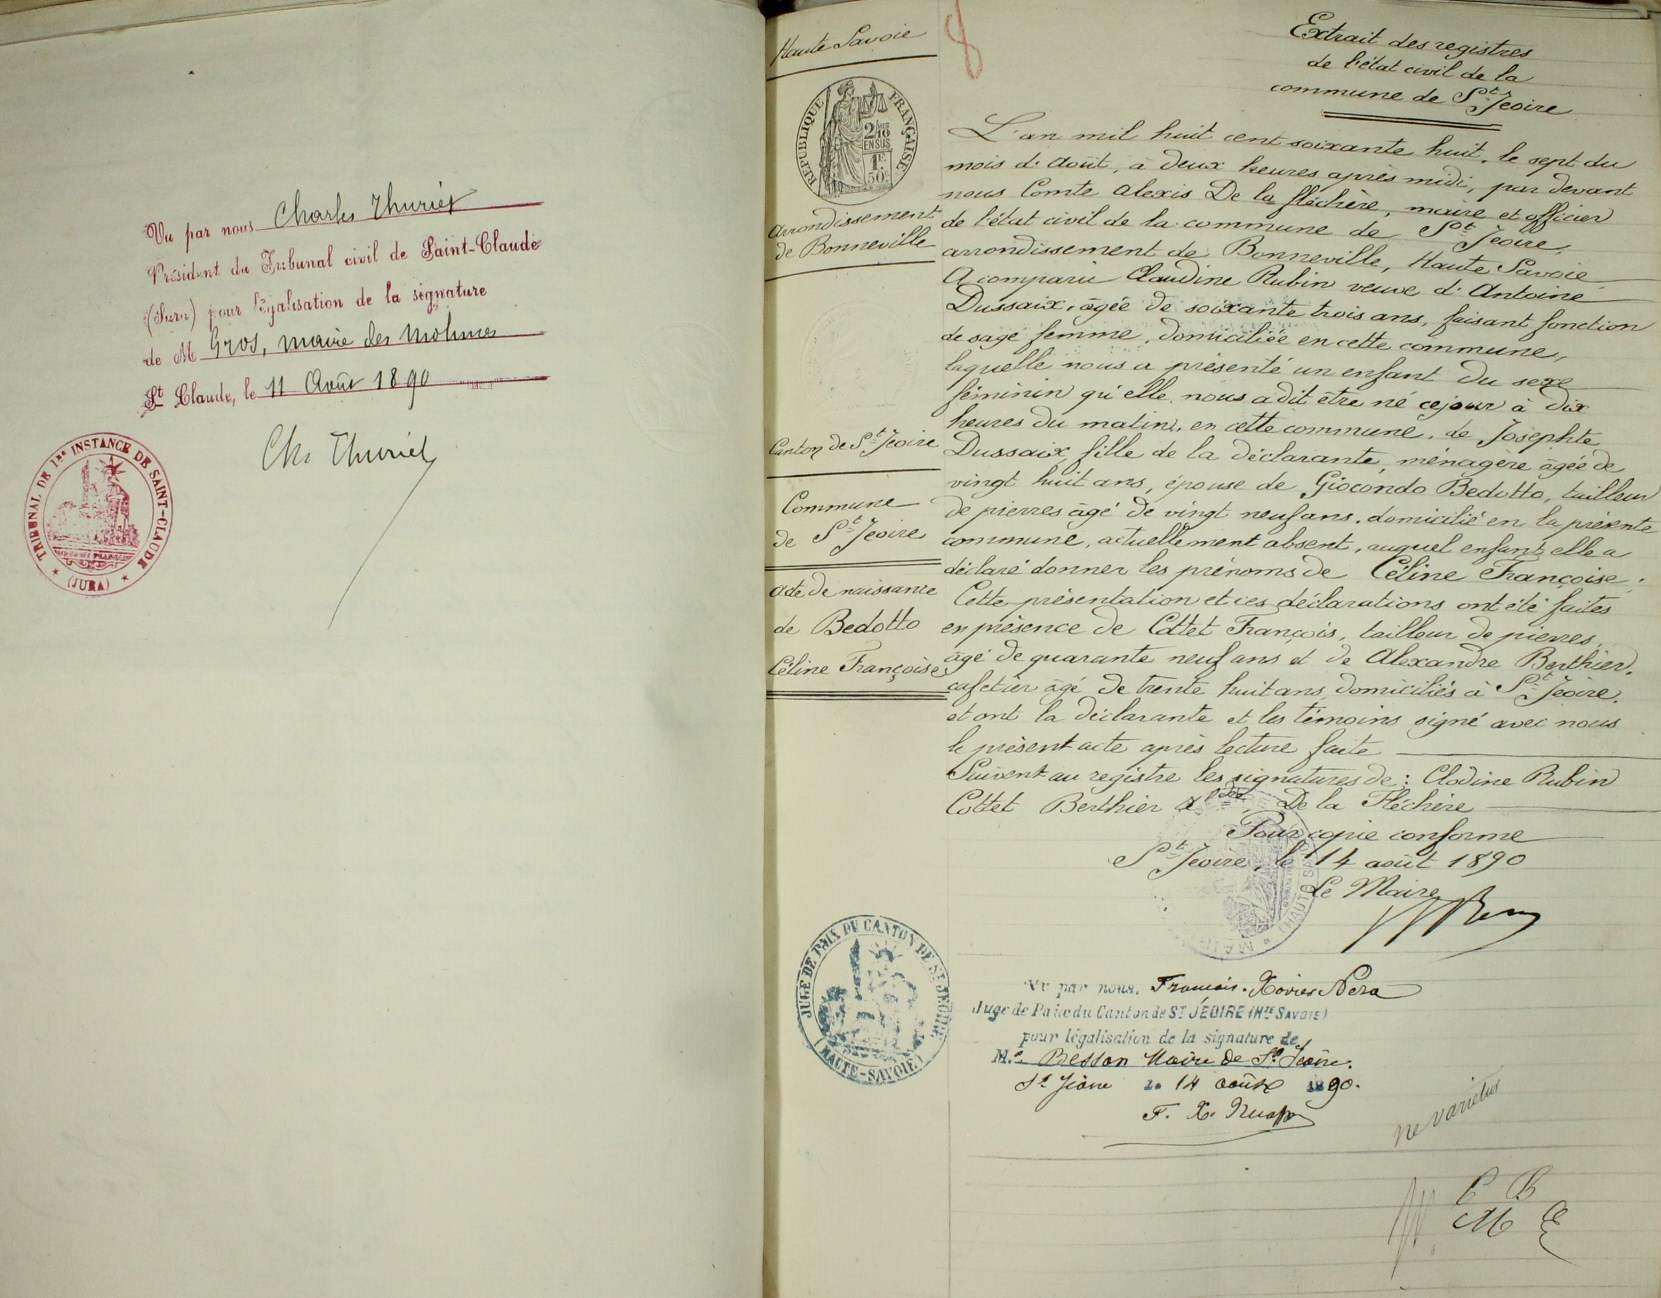 Vu par nous Charles Thuriet
Président du Tribunal civil de Saint-Claude
(Jura) pour légalisation de la signature
de M Gros, maire des Molunes
St Claude, le 11 Août 1890
Ch. Thuriet
TRIBUNAL DE 1RE INSTANCE DE SAINT-CLAUDE
(JURA)
Haute Savoie
RÉPUBLIQUE FRANÇAISE
2/10
EN SUS
1F
50c
Arrondissement
de Bonneville
Canton de St Jeoire
Commune
de St Jeoire
Acte de naissance
de Bedotto
Céline Françoise
JUGE DE PAIX DU CANTON DE ST JEOIRE
(HAUTE-SAVOIE)
8
Extrait des registres
de l'état civil de la
commune de St Jeoire
L'an mil huit cent soixante huit, le sept du
mois d'août, à deux heures après midi, par devant
nous Comte Alexis De la fléchère, maire et officier
de l'état civil de la commune de St Jeoire,
arrondissement de Bonneville, Haute Savoie
A comparu Claudine Rubin veuve d'Antoine
Dussaix, âgée de soixante trois ans, faisant fonction
de sage femme, domiciliée en cette commune,
laquelle nous a présenté un enfant du sexe
féminin qu'elle nous a dit être né ce jour à dix
heures du matin, en cette commune, de Josephte
Dussaix, fille de la déclarante, ménagère âgée de
vingt huit ans, épouse de Giocondo Bedotto, tailleur
de pierres âgé de vingt neuf ans, domicilié en la présente
commune, actuellement absent, auquel enfant elle a
déclaré donner les prénoms de Céline Françoise.
Cette présentation et ces déclarations ont été faites
en présence de Cottet François, tailleur de pierres,
âgé de quarante neuf ans et de Alexandre Berthier,
cafetier âgé de trente huit ans, domiciliés à St Jeoire,
et ont la déclarante et les témoins signé avec nous
le présent acte après lecture faite
Suivent au registre les signatures de : Clodine Rubin
Cottet Berthier Aldre De la Fléchère
Pour copie conforme
St Jeoire, le 14 août 1890
Le Maire
Vu par nous, François-Xavier
Juge de Paix du Canton de ST JEOIRE (HTE SAVOIE)
pour légalisation de la signature de
M. Besson Maire de St Jeoire.
St Jeoire le 14 août 1890.
F. X.
ne varietur